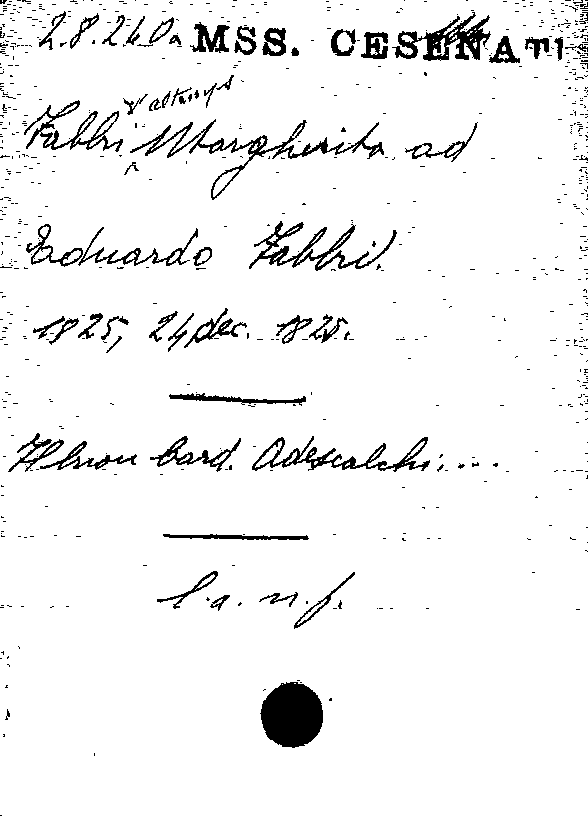 2.8.240a MSS. CESENATI
Fabbri Margherita ad
Eduardo Fabbri.
1825, 24 dec. 1825.
Card. Odescalchi....
l.a.n.f.